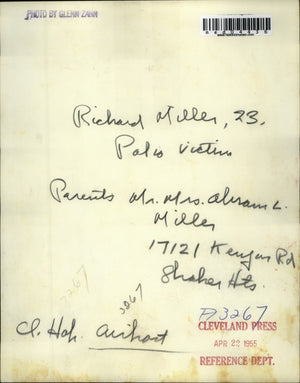 PHOTO BY GLENN ZAHN
Richard Miller, 23.
Polio Victim
Parents Mr. Mrs. Abram L.
Miller
17121 Kenyon Rd
Shaker Hts.
3267
3267
P3267
Cl. Hop.
CLEVELAND PRESS
APR 22 1955
REFERENCE DEPT.